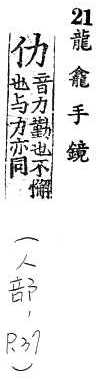 21
龍龕手鏡
仂音力勤也不懈
也与力亦同
(人部,P.37)